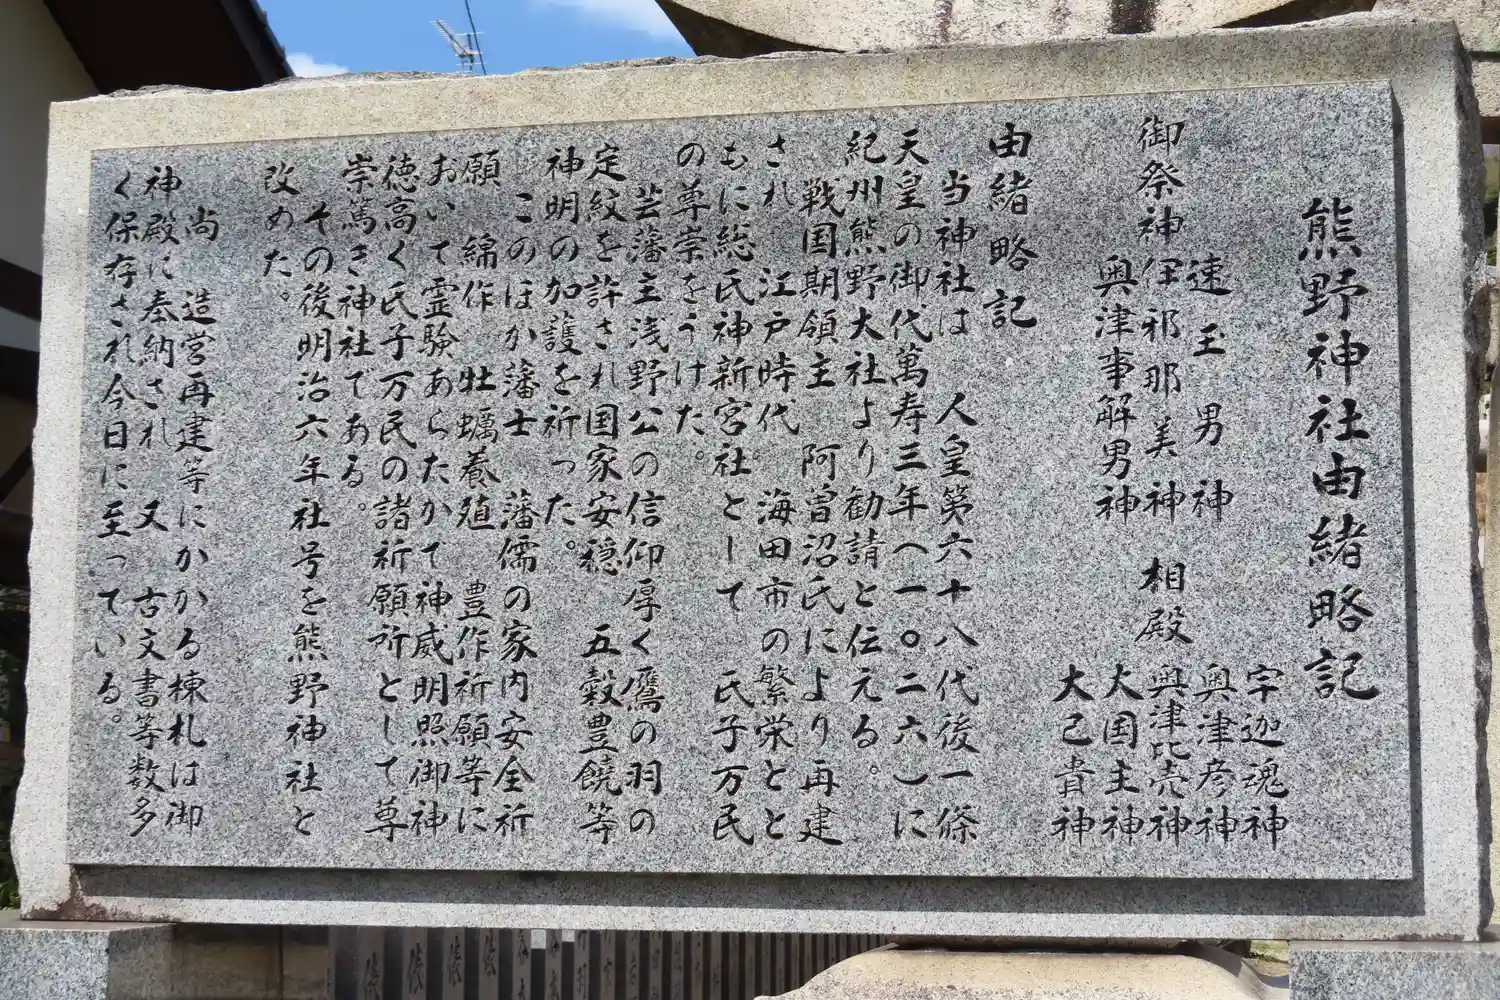 熊野神社由緒略記
御祭神
速玉男神
伊邪那美神
奥津事解男神
相殿
宇迦魂神
奥津彦神
奥津比売神
大国主神
大己貴神
由緒略記
当神社は 人皇第六十八代後一條
天皇の御代萬寿三年(一〇二六)に
紀州熊野大社より勧請と伝える。
戦国期領主 阿曽沼氏により再建
され 江戸時代 海田市の繁栄とと
もに総氏神新宮社として 氏子万民
の尊崇をうけた。
芸藩主浅野公の信仰厚く鷹の羽の
定紋を許され国家安穏 五穀豊饒等
神明の加護を祈った。
このほか藩士 藩儒の家内安全祈
願 綿作 牡蠣養殖 豊作祈願等に
おいて霊験あらたかで神威明照御神
徳高く氏子万民の諸祈願所として尊
崇篤き神社である。
その後明治六年社号を熊野神社と
改めた。
尚 造営再建等にかかる棟札は御
神殿に奉納され 又 古文書等数多
く保存され今日に至っている。